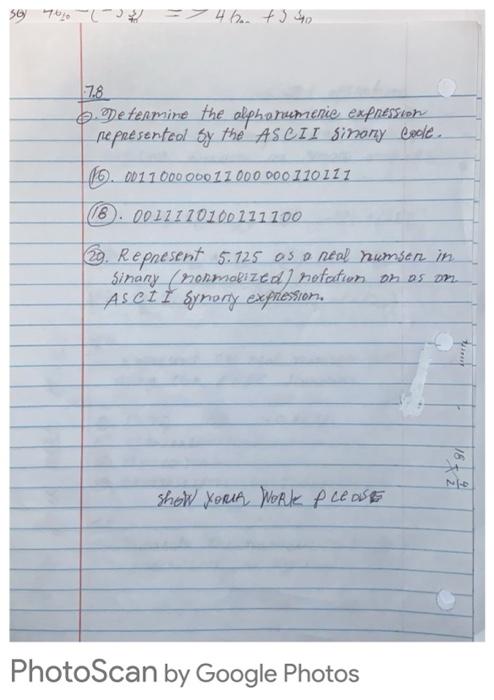 7.8
Determine the alphanumeric expression
represented by the ASCII binary code.
16). 001100000011000000110111
18). 0011110100111100
20. Represent 5.125 as a real number in
binary (normalized) notation or as an
ASCII bynary expression.
18
show your work please
PhotoScan by Google Photos